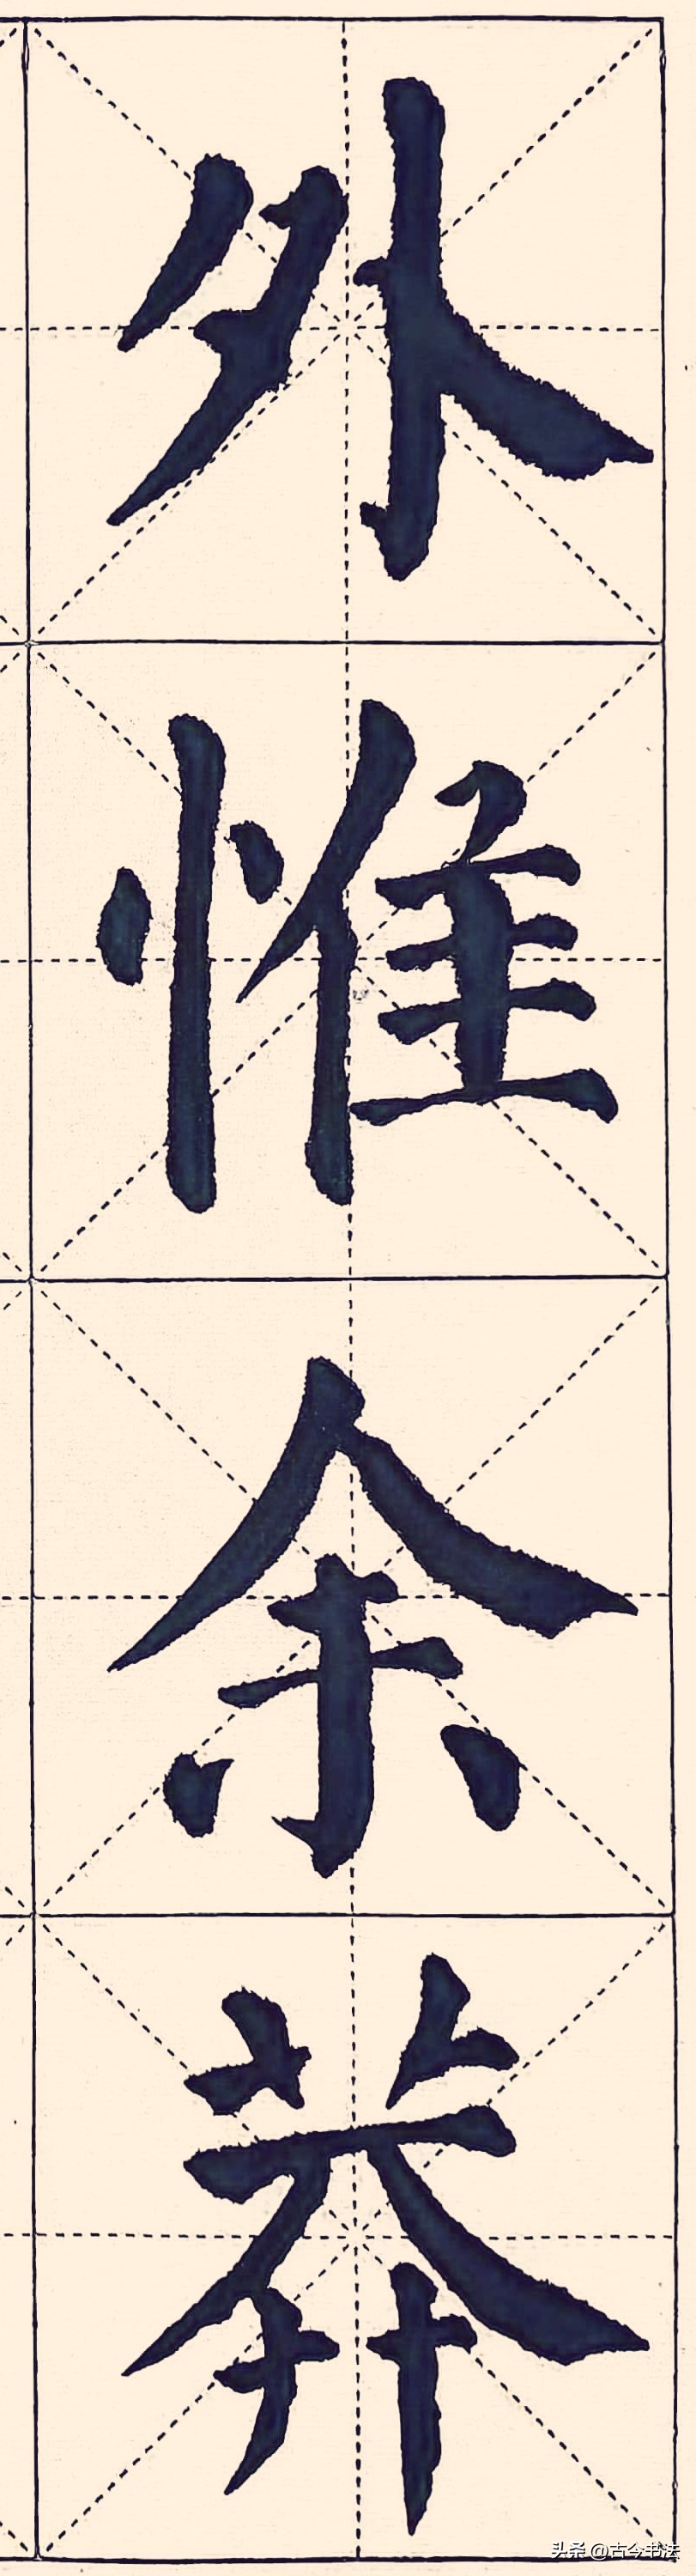 外
惟
余
莽
头条 @古今书法